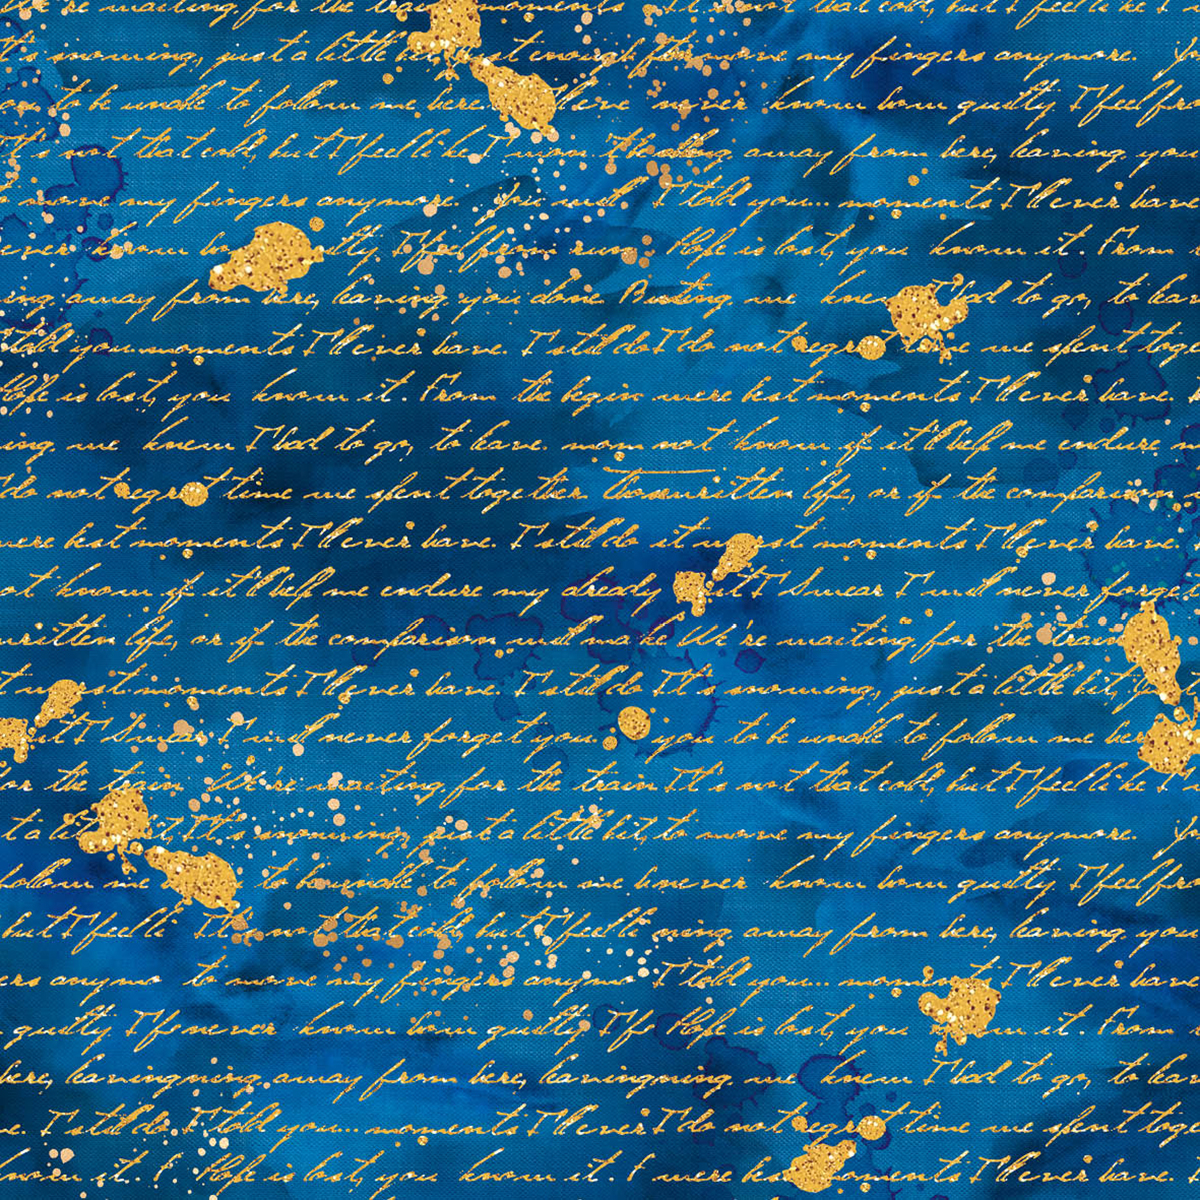 We're waiting for the train moments It's not that cold, but I feel like I
It's morning, just a little bit enough to move my fingers anymore. You
to be unable to follow me here. never know how guilty I feel from
It's not that cold, but I feel like I away from here, leaving you
move my fingers anymore. You will. I told you... moments I'll ever have
ever know guilty. I feel from run Hope is lost, you know it. From
ing away from here, leaving you done Busting. we knew I had to go, to leave
I told you moments I'll ever have. I still do I do not regret time we spent toge
Hope is lost, you know it. From the begin were best moments I'll ever have.
ing. we knew I had to go, to leave. mom not know if it'll help me endure.
do not regret time we spent together. written life, or if the comparison
were best moments I'll ever have. I still do it moments I'll ever have.
ot know if it'll help me endure my already but I Swear I will never forge
written life, or if the comparison will make We're waiting for the train
moments I'll ever have. I still do It's morning, just a little bit,
but I Swear I will never forget you. you to be unable to follow me
or the train We're waiting for the train It's not that cold, but I feel like I
t a lit It's morning, just a little bit, to move my fingers anymore. You
follow me to be unable to follow me never know how guilty I feel fro
but I feel li It's not that cold, but I feel li ning away from here, leaving you
ers anymo to move my fingers anymo I told you... moments I'll ever have
guilty I f never know how guilty I f Hope is lost, you know it. From
here, leaving ning away from here, leaving ning. we knew I had to go, to leav
e. I still do I told you... moments I'll ever I do not regret time we spent toge
known it. I Hope is lost, you know it. I were best moments I'll ever have.